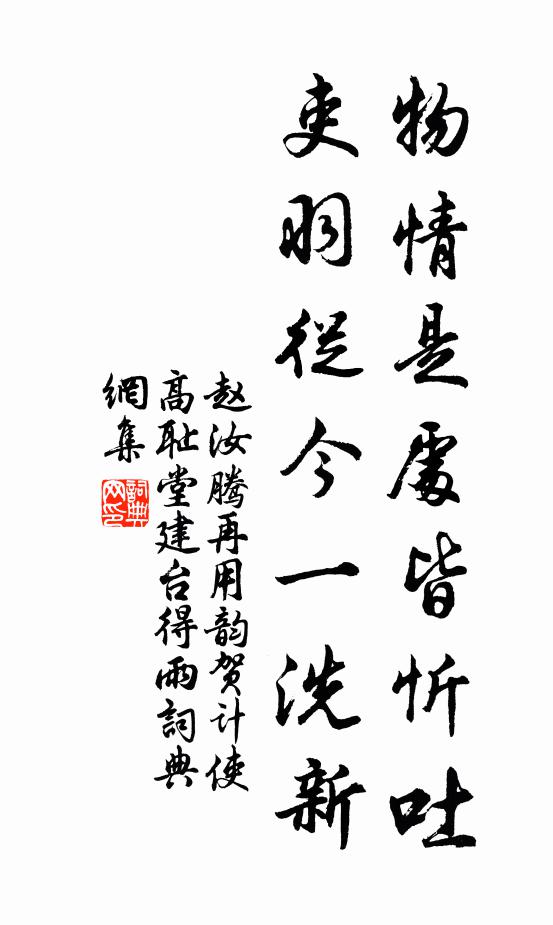 物情是處皆忻吐
吏羽從今一洗新
赵汝腾再用韵贺计使
高耻堂建台得雨詞典
網集
詞典
网印